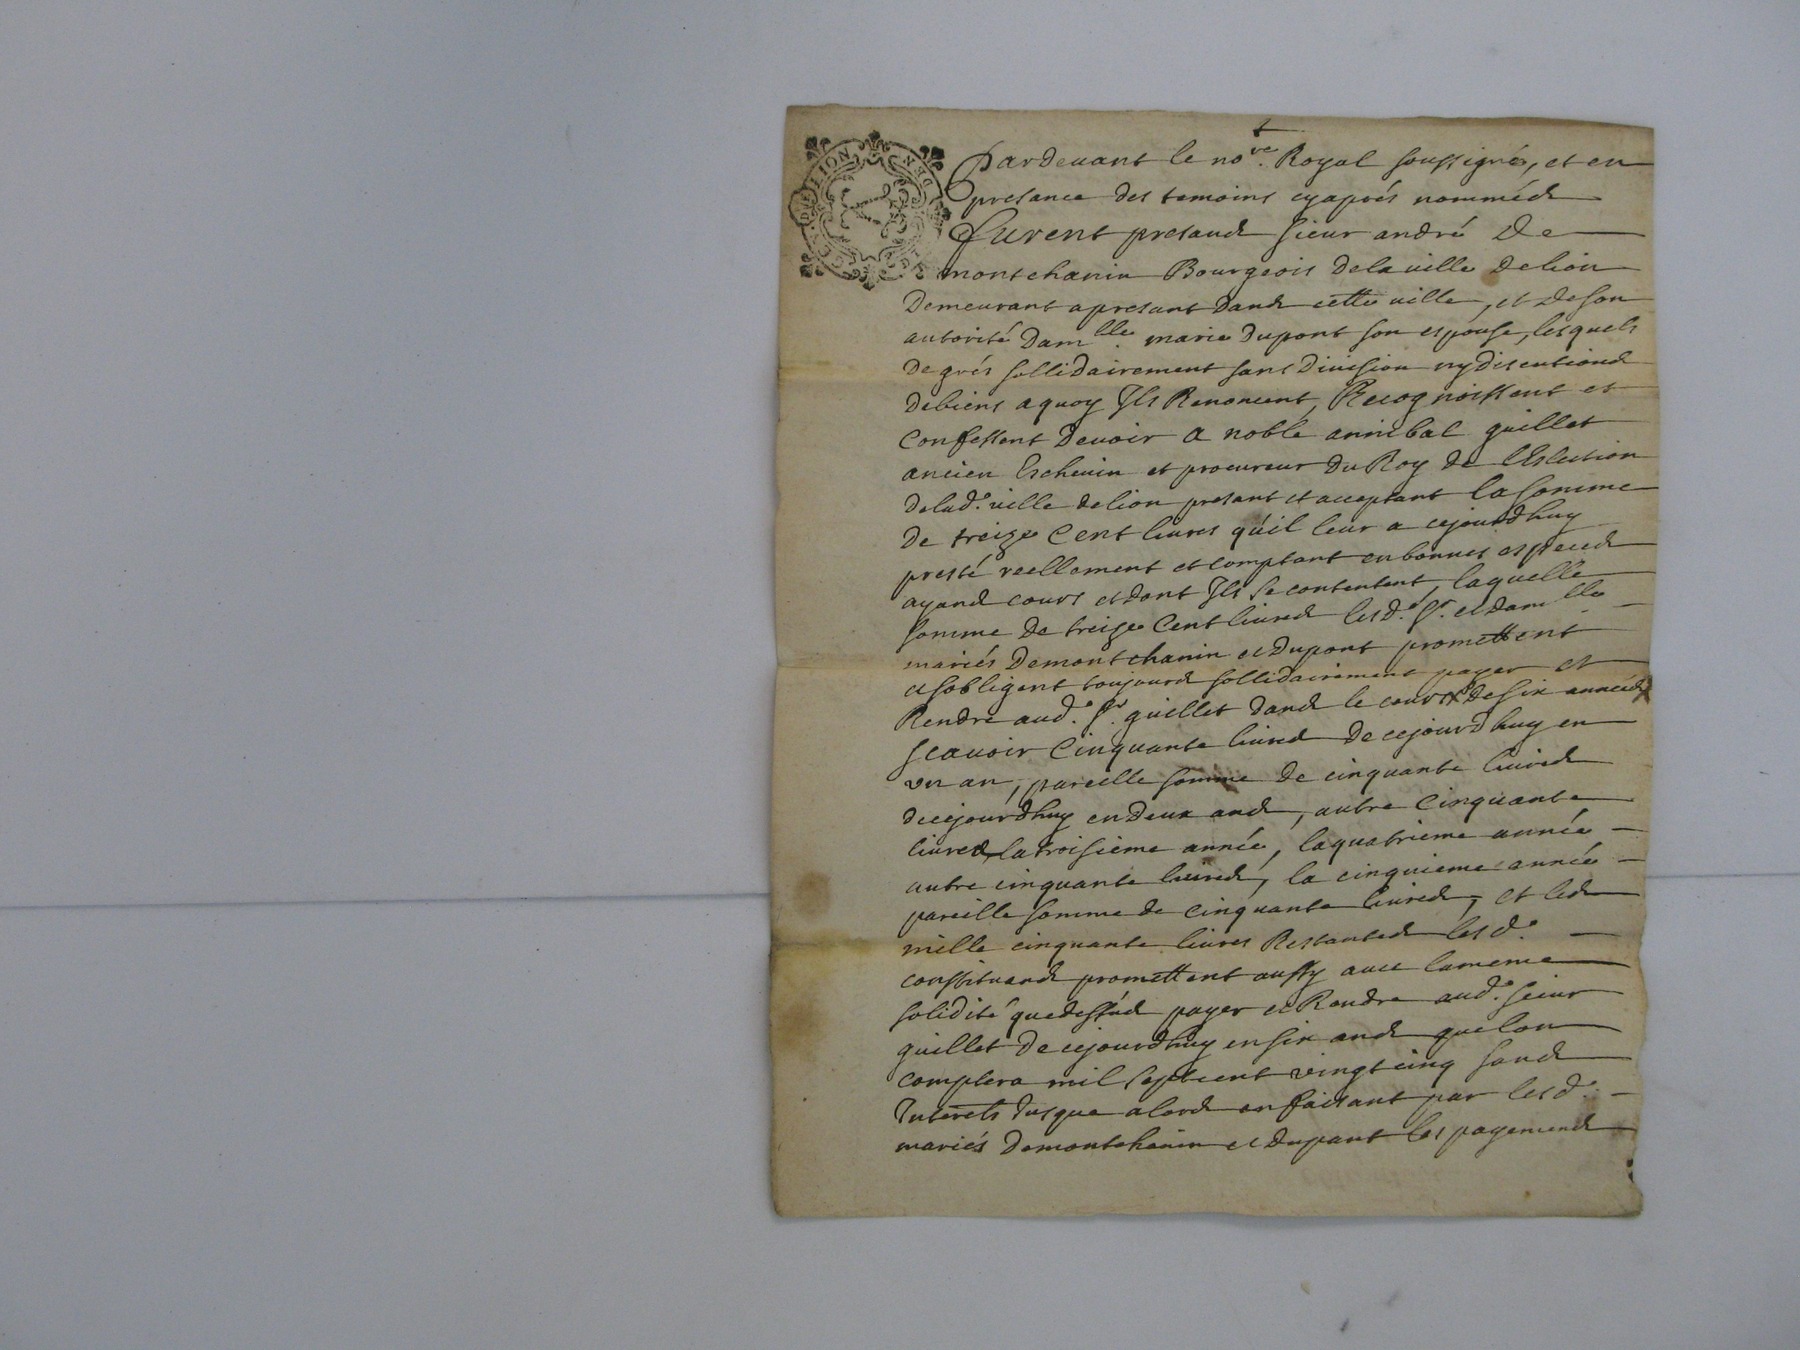 DE LION
pardevant le no.re Royal soussigné, et en
presance des temoins cyaprés nommés
furent presans sieur andré de
montchanin Bourgeois delaville delion
demeurant apresant dans cette ville, et deson
autorité dam.lle marie dupont son espouse, lesquels
degrés sollidairement sans division ny discutions
debiens aquoy Ils Renoncent, Recognoissent et
confessent devoir a noble annibal guillet
ancien Eschevin et procureur du Roy de lEslection
delad.e ville delion presant et acceptant la somme
de treize Cent livres qu'il leur a cejourdhuy
presté reellement et comptant en bonnes especes
ayans cours et dont Ils se contentent, laquelle
somme de treize Cent livres lesd.s Sr. et dam.lle
mariés demontchanin et dupont promettent
et sobligent toujours sollidairement payer et
Rendre aud.t Sr. guillet dans le cours de six années
scavoir Cinquante livres de cejourdhuy en
un an, pareille somme de cinquante livres
decejourdhuy en deux ans, autre Cinquante
livres la troisieme année, laquatrieme année
autre cinquante livres, la cinquieme année
pareille somme de cinquante livres, et les
mille cinquante livres Restantes lesd.s
constituans promettent aussy avec lameme
solidité quedessus payer et Rendre aud.t sieur
guillet de cejourdhuy en six ans que lon
comptera mil septcent vingt cinq sans
Interets Jusque alors en faisant par lesd.s
mariés demontchanin et dupont les payemens